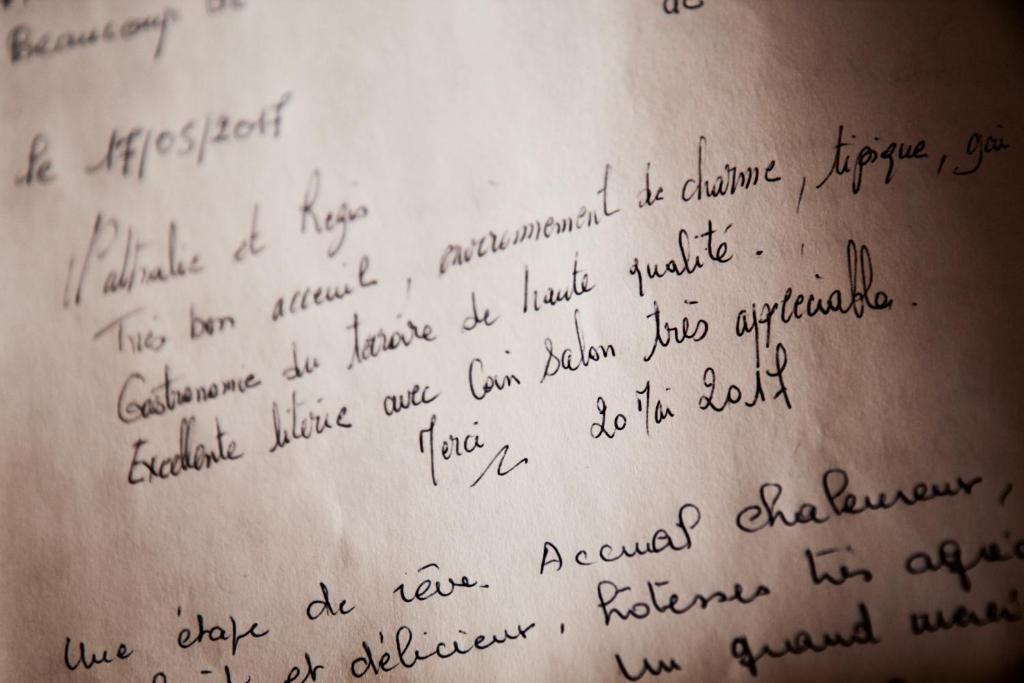 Beaucoup de
de
le 17/05/2017
Nathalie et Regis
Très bon acceuil, environnement de charme, tipique, gai
Gastronomie du terroire de haute qualité.
Excellente literie avec Coin Salon très appreciable.
Merci 20 Mai 2017
Une étape de rêve. Accueil chaleureux,
et délicieux, hôtesses très agré
Un grand merci